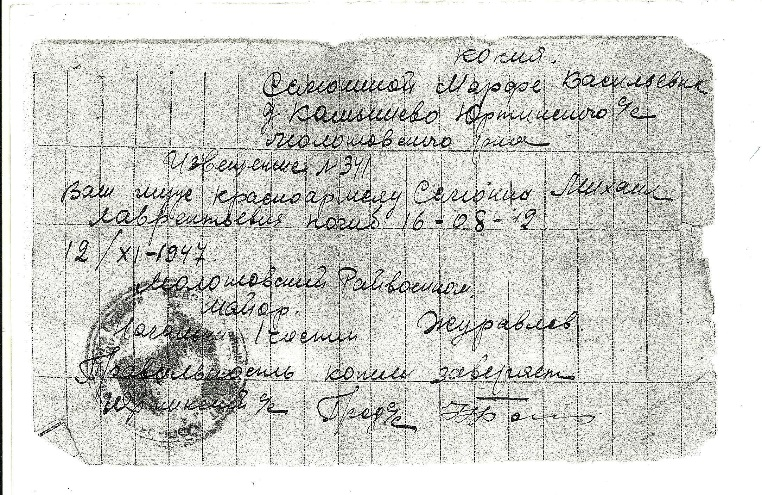 копия.
Семошиной Марфе Васильевне
д Камышево Юртинского с/с
Молотовского р-на
Извещение №341
Ваш муж красноармеец Михаил
Лаврентьевич погиб 16-08-42
12/XI-1947.
Молотовский Райвоенком.
Майор.
1 части Журавлов.
Правильность копии заверяет
с/с Пред с/с